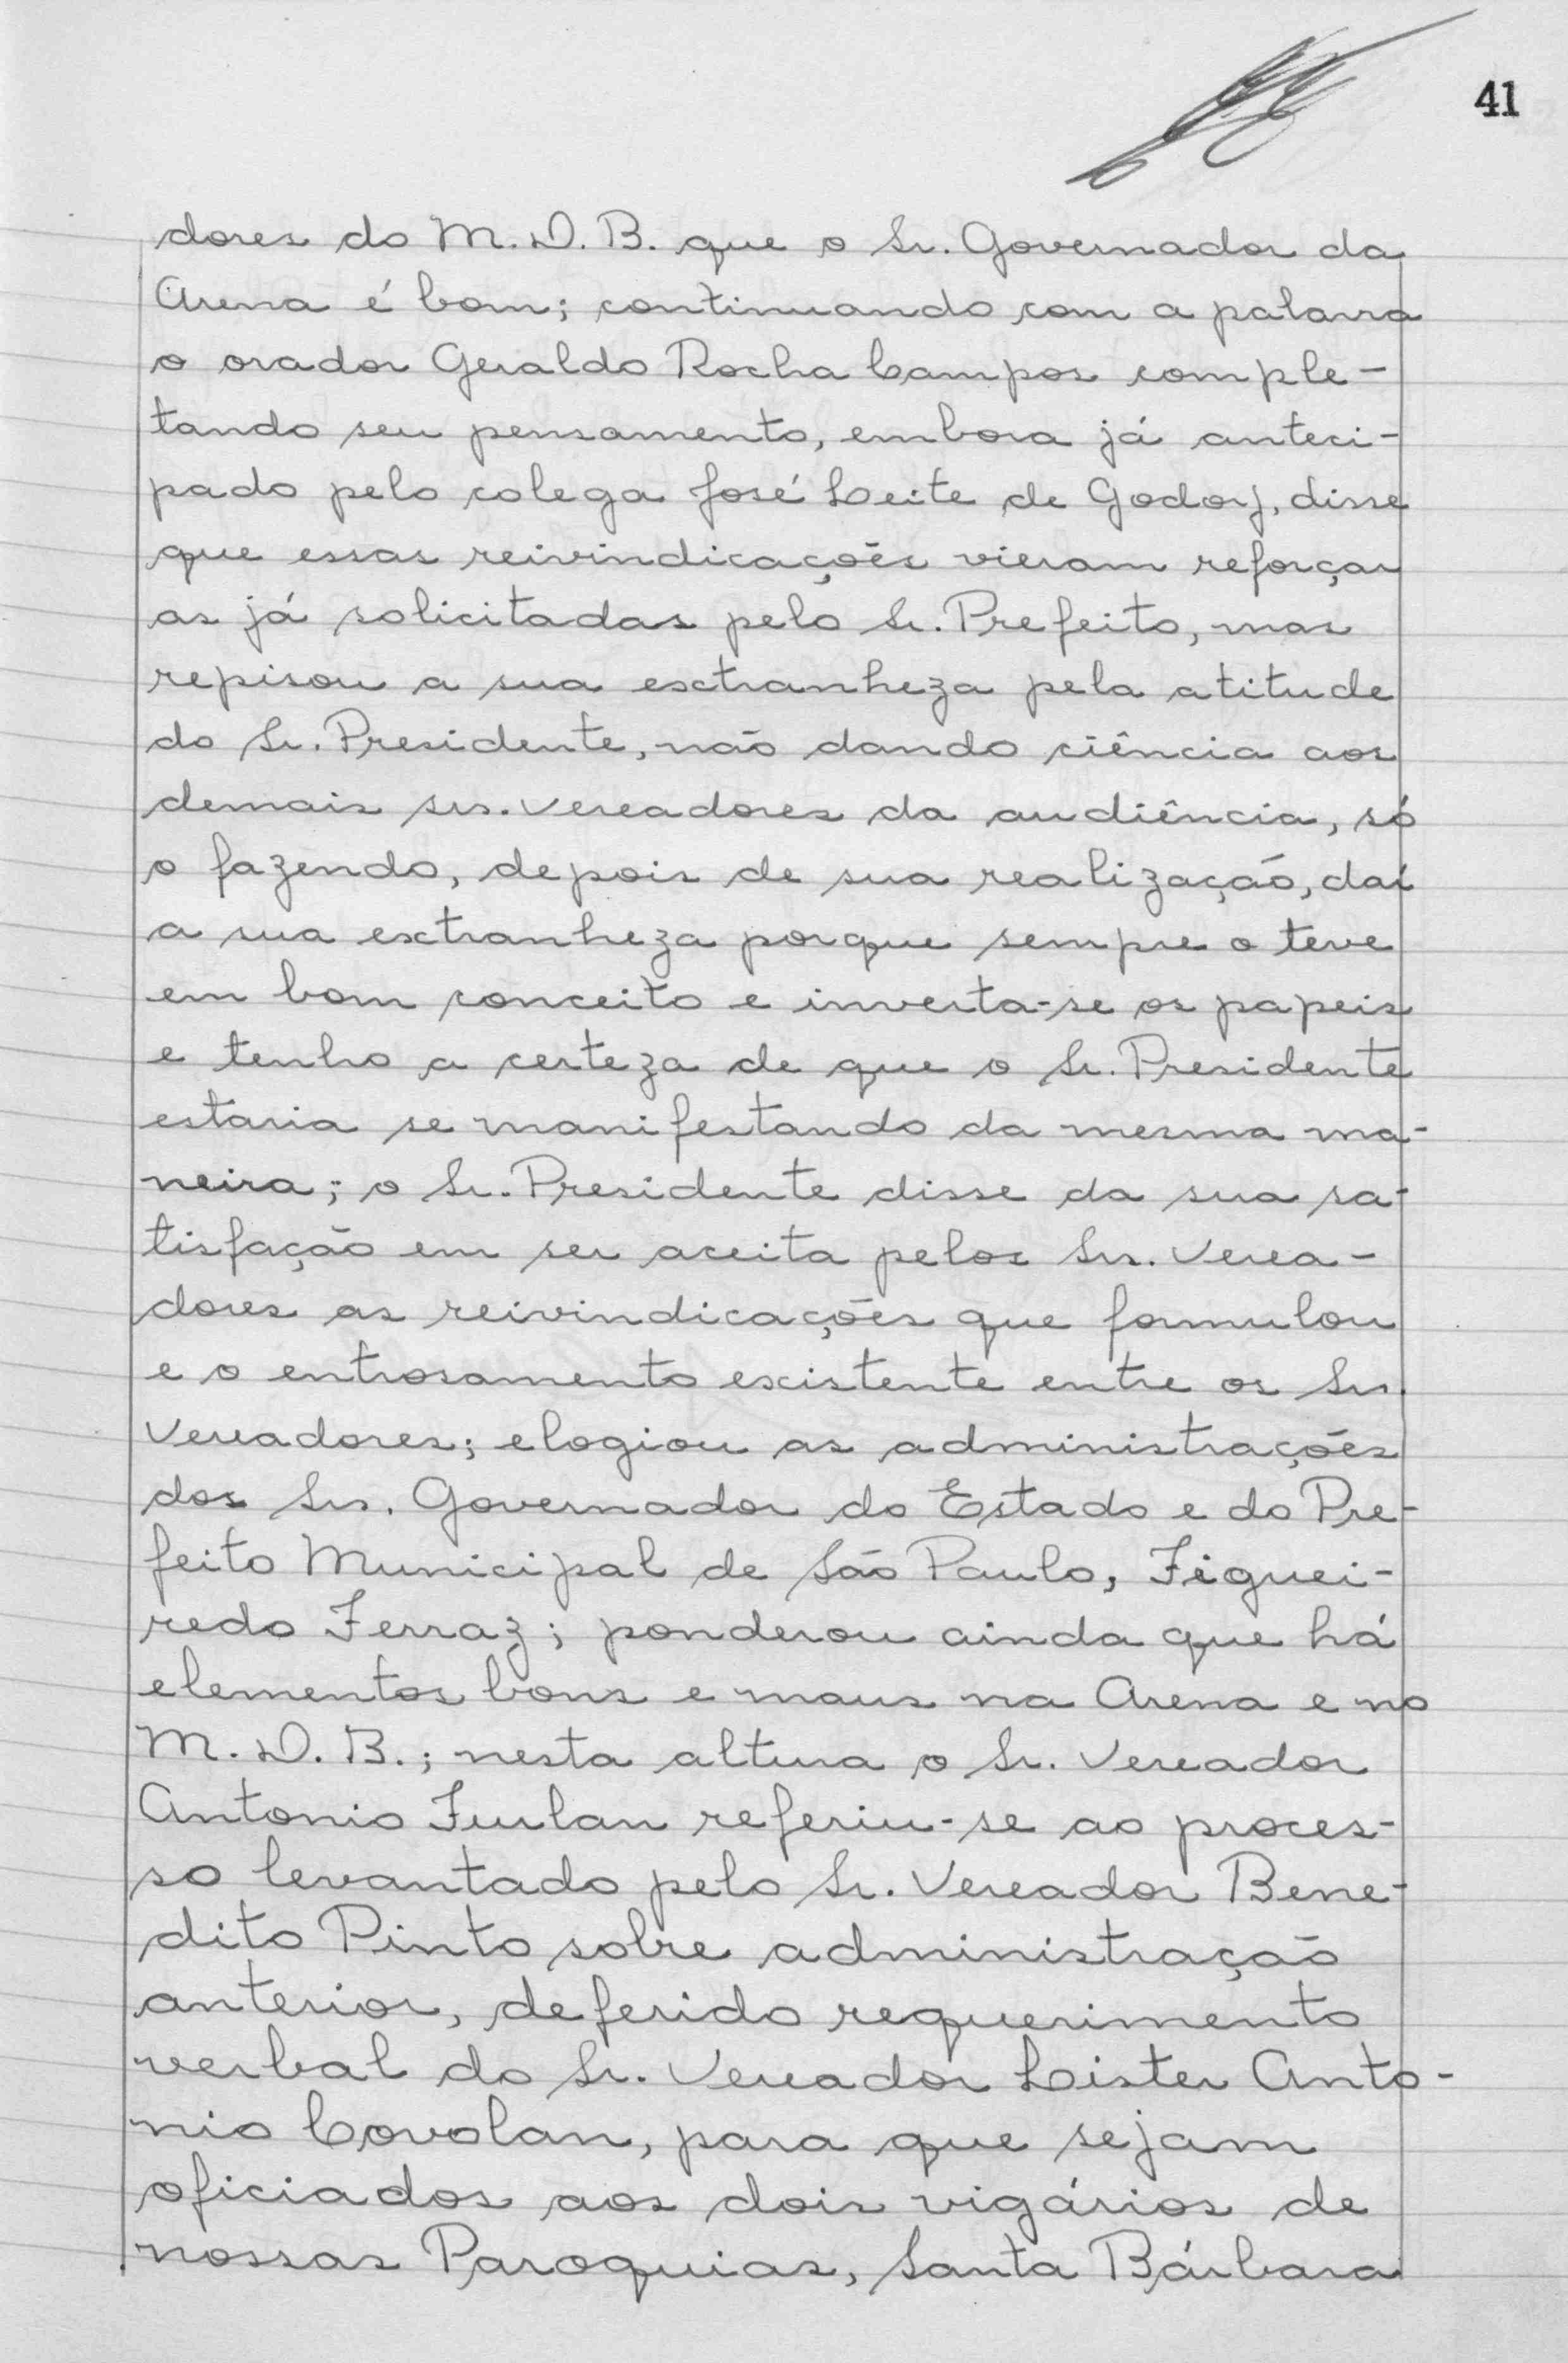 41
dores do M.D.B. que o Sr. Governador da
Arena é bom; continuando com a palavra
o orador Geraldo Rocha Campos comple-
tando seu pensamento, embora já anteci-
pado pelo colega José Leite de Godoy, disse
que essas reivindicações vieram reforçar
as já solicitadas pelo Sr. Prefeito, mas
repisou a sua extranheza pela atitude
do Sr. Presidente, não dando ciência aos
demais srs. vereadores da audiência, só
o fazendo, depois de sua realização, daí
a sua extranheza porque sempre o teve
em bom conceito e inverta-se os papeis
e tenho a certeza de que o Sr. Presidente
estaria se manifestando da mesma ma-
neira; o Sr. Presidente disse da sua sa-
tisfação em ser aceita pelos Srs. Verea-
dores as reivindicações que formulou
e o entrosamento existente entre os Srs.
Vereadores; elogiou as administrações
dos Srs. Governador do Estado e do Pre-
feito Municipal de São Paulo, Figuei-
redo Ferraz; ponderou ainda que há
elementos bons e maus na Arena e no
M.D.B.; nesta altura o Sr. Vereador
Antonio Furlan referiu-se ao proces-
so levantado pelo Sr. Vereador Bene-
dito Pinto sobre administração
anterior, deferido requerimento
verbal do Sr. Vereador Lister Anto-
nio Covolan, para que sejam
oficiados aos dois vigários de
nossas Paroquias, Santa Bárbara